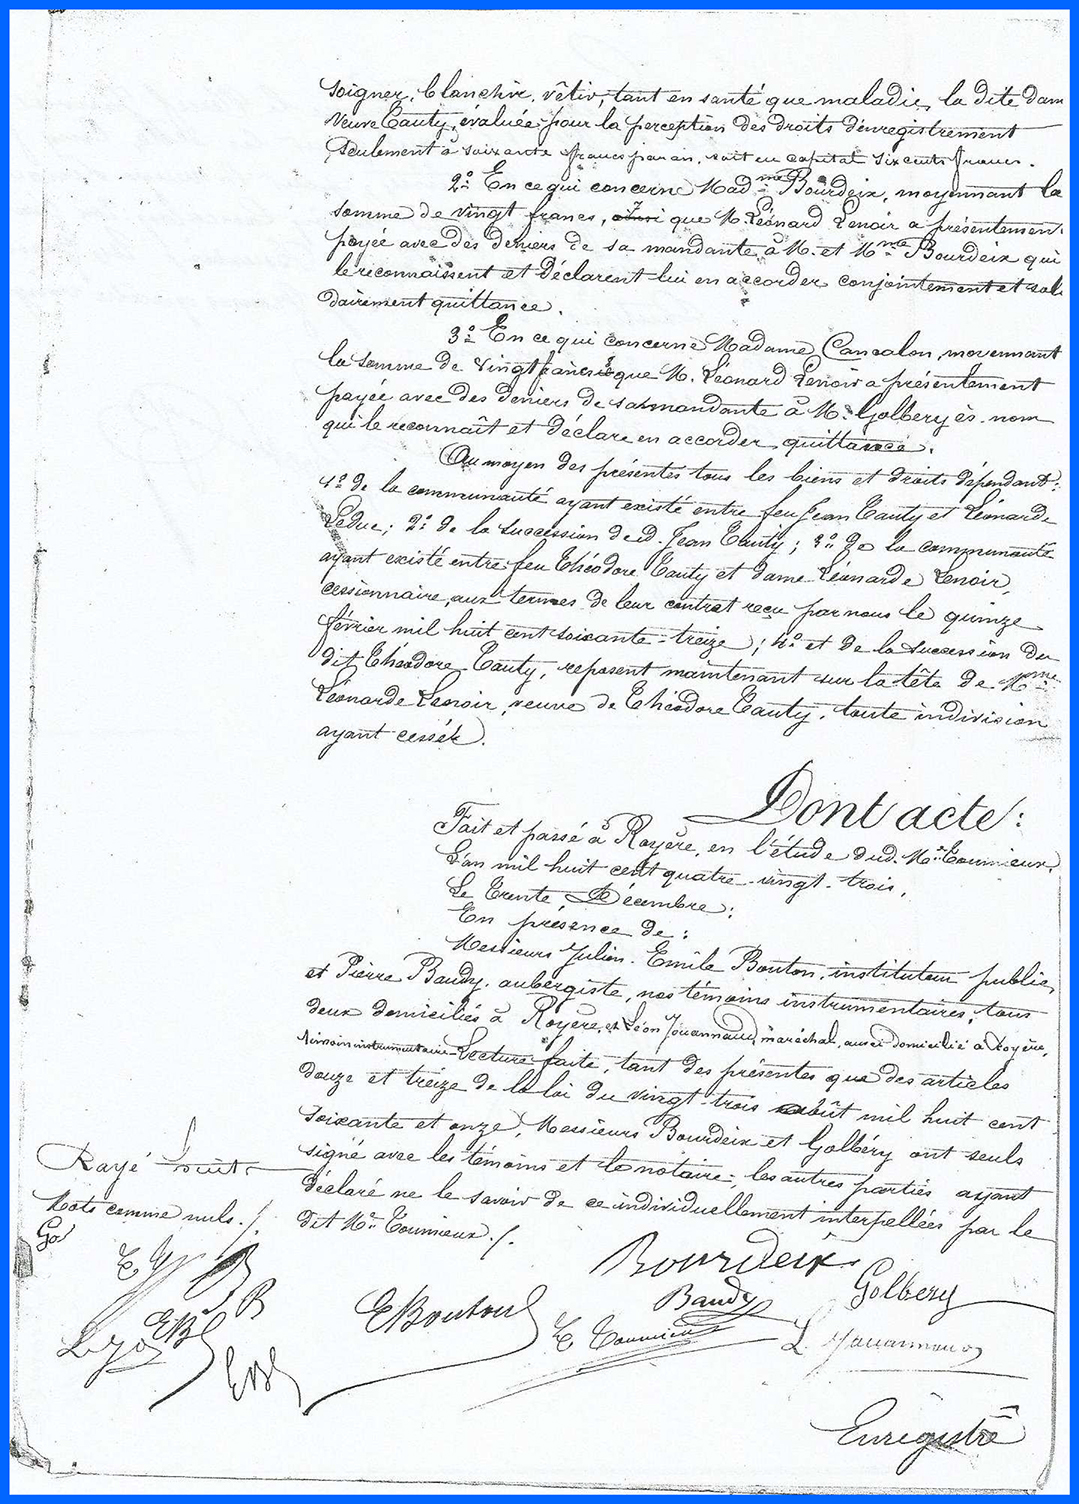 soigner, blanchir, vêtir, tant en santé que maladie, la dite dam
Veuve Tauty, évaluée pour la perception des droits d'enregistrement
seulement à soixante francs par an, soit en capital six cents francs.
2° En ce qui concerne Mad.me Bourdeix, moyennant la
somme de vingt francs, que M. Léonard Lenoir a présentement
payée avec des deniers de sa mandante à M. et Mme Bourdeix qui
le reconnaissent et déclarent lui en accorder conjointement et soli
dairement quittance.
3° En ce qui concerne Madame Cancalon, moyennant
la somme de vingt francs que M. Léonard Lenoir a présentement
payée avec des deniers de sa mandante à M. Golbery ès-nom
qui le reconnaît et déclare en accorder quittance.
Au moyen des présentes tous les biens et droits dépendant:
1° de la communauté ayant existé entre feu Jean Tauty et Léonarde
Leduc; 2° de la succession dud. Jean Tauty; 3° de la communauté
ayant existé entre feu Théodore Tauty et dame Léonarde Lenoir,
cessionnaire, aux termes de leur contrat reçu par nous le quinze
février mil huit cent soixante-treize; 4° et de la succession du
dit Théodore Tauty, reposent maintenant sur la tête de Mme
Léonarde Lenoir, veuve de Théodore Tauty, toute indivision
ayant cessée.
Dont acte:
Fait et passé à Royère, en l'étude dud. Me Toumieux,
L'an mil huit cent quatre-vingt-trois,
Le Trente Décembre;
En présence de:
Messieurs Julien-Emile Bouton, instituteur public,
et Pierre Baudy, aubergiste, nos témoins instrumentaires, tous
deux domiciliés à Royère, et Léon Jouannaud, maréchal, aussi domicilié à Royère,
témoin instrumentaire. Lecture faite, tant des présentes que des articles
douze et treize de la loi du vingt-trois août mil huit cent
soixante et onze, Messieurs Bourdeix et Golbéry ont seuls
signé avec les témoins et le notaire, les autres parties ayant
déclaré ne le savoir de ce individuellement interpellées par le
dit Me Toumieux./.
Rayé huit
Mots comme nuls./.
Go
Bourdeix
Golbery
Baudy
E Bouton
E Toumieux
L. Jouannaud
Enregistré